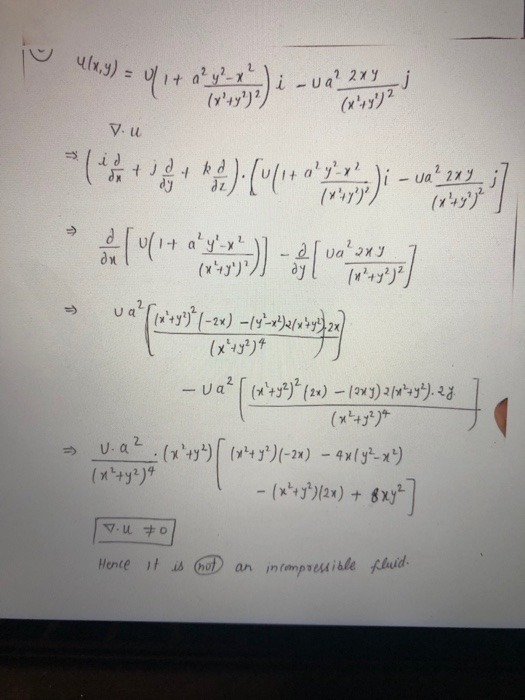 u(x,y) = U(1 + a² (y²-x²)/(x²+y²)²) i - Ua² 2xy/(x²+y²)² j
∇·u
⇒ (i ∂/∂x + j ∂/∂y + k ∂/∂z)·[U(1 + a² (y²-x²)/(x²+y²)²) i - Ua² 2xy/(x²+y²)² j]
⇒ ∂/∂x [U(1 + a² (y²-x²)/(x²+y²)²)] - ∂/∂y [Ua² 2xy/(x²+y²)²]
⇒ Ua² [((x²+y²)²(-2x) - (y²-x²)2(x²+y²)·2x)/(x²+y²)⁴]
- Ua² [((x²+y²)²(2x) - (2xy)2(x²+y²)·2y)/(x²+y²)⁴]
⇒ U·a²/(x²+y²)⁴ ·(x²+y²) [(x²+y²)(-2x) - 4x(y²-x²)
- (x²+y²)(2x) + 8xy²]
∇·u ≠ 0
Hence it is not an incompressible fluid.